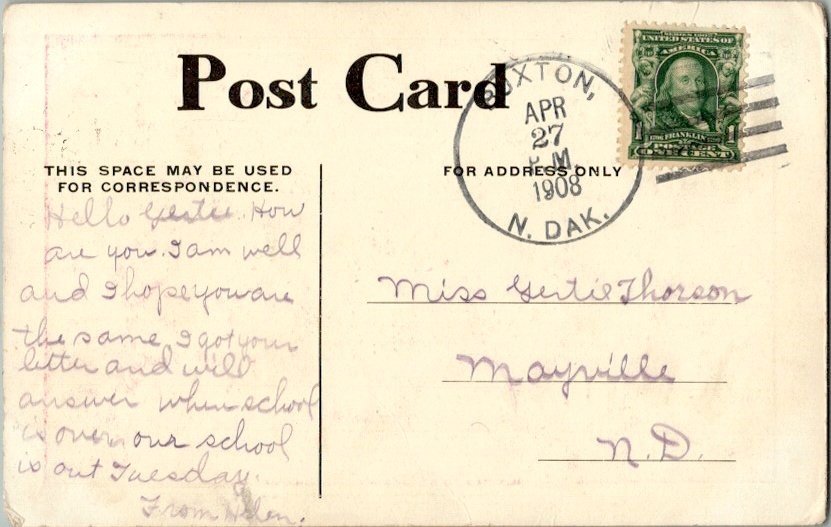 Post Card
BUXTON,
APR
27
P.M.
1908
N. DAK.
SERIES 1902
UNITED STATES OF
AMERICA
1
1
FRANKLIN
POSTAGE
ONE CENT
THIS SPACE MAY BE USED
FOR CORRESPONDENCE.
FOR ADDRESS ONLY
Hello Gertie. How
are you. I am well
and I hope you are
the same. I got your
letter and will
answer when school
is over our school
is out Tuesday.
From Helen.
Miss Gertie Thorson
Mayville
N.D.